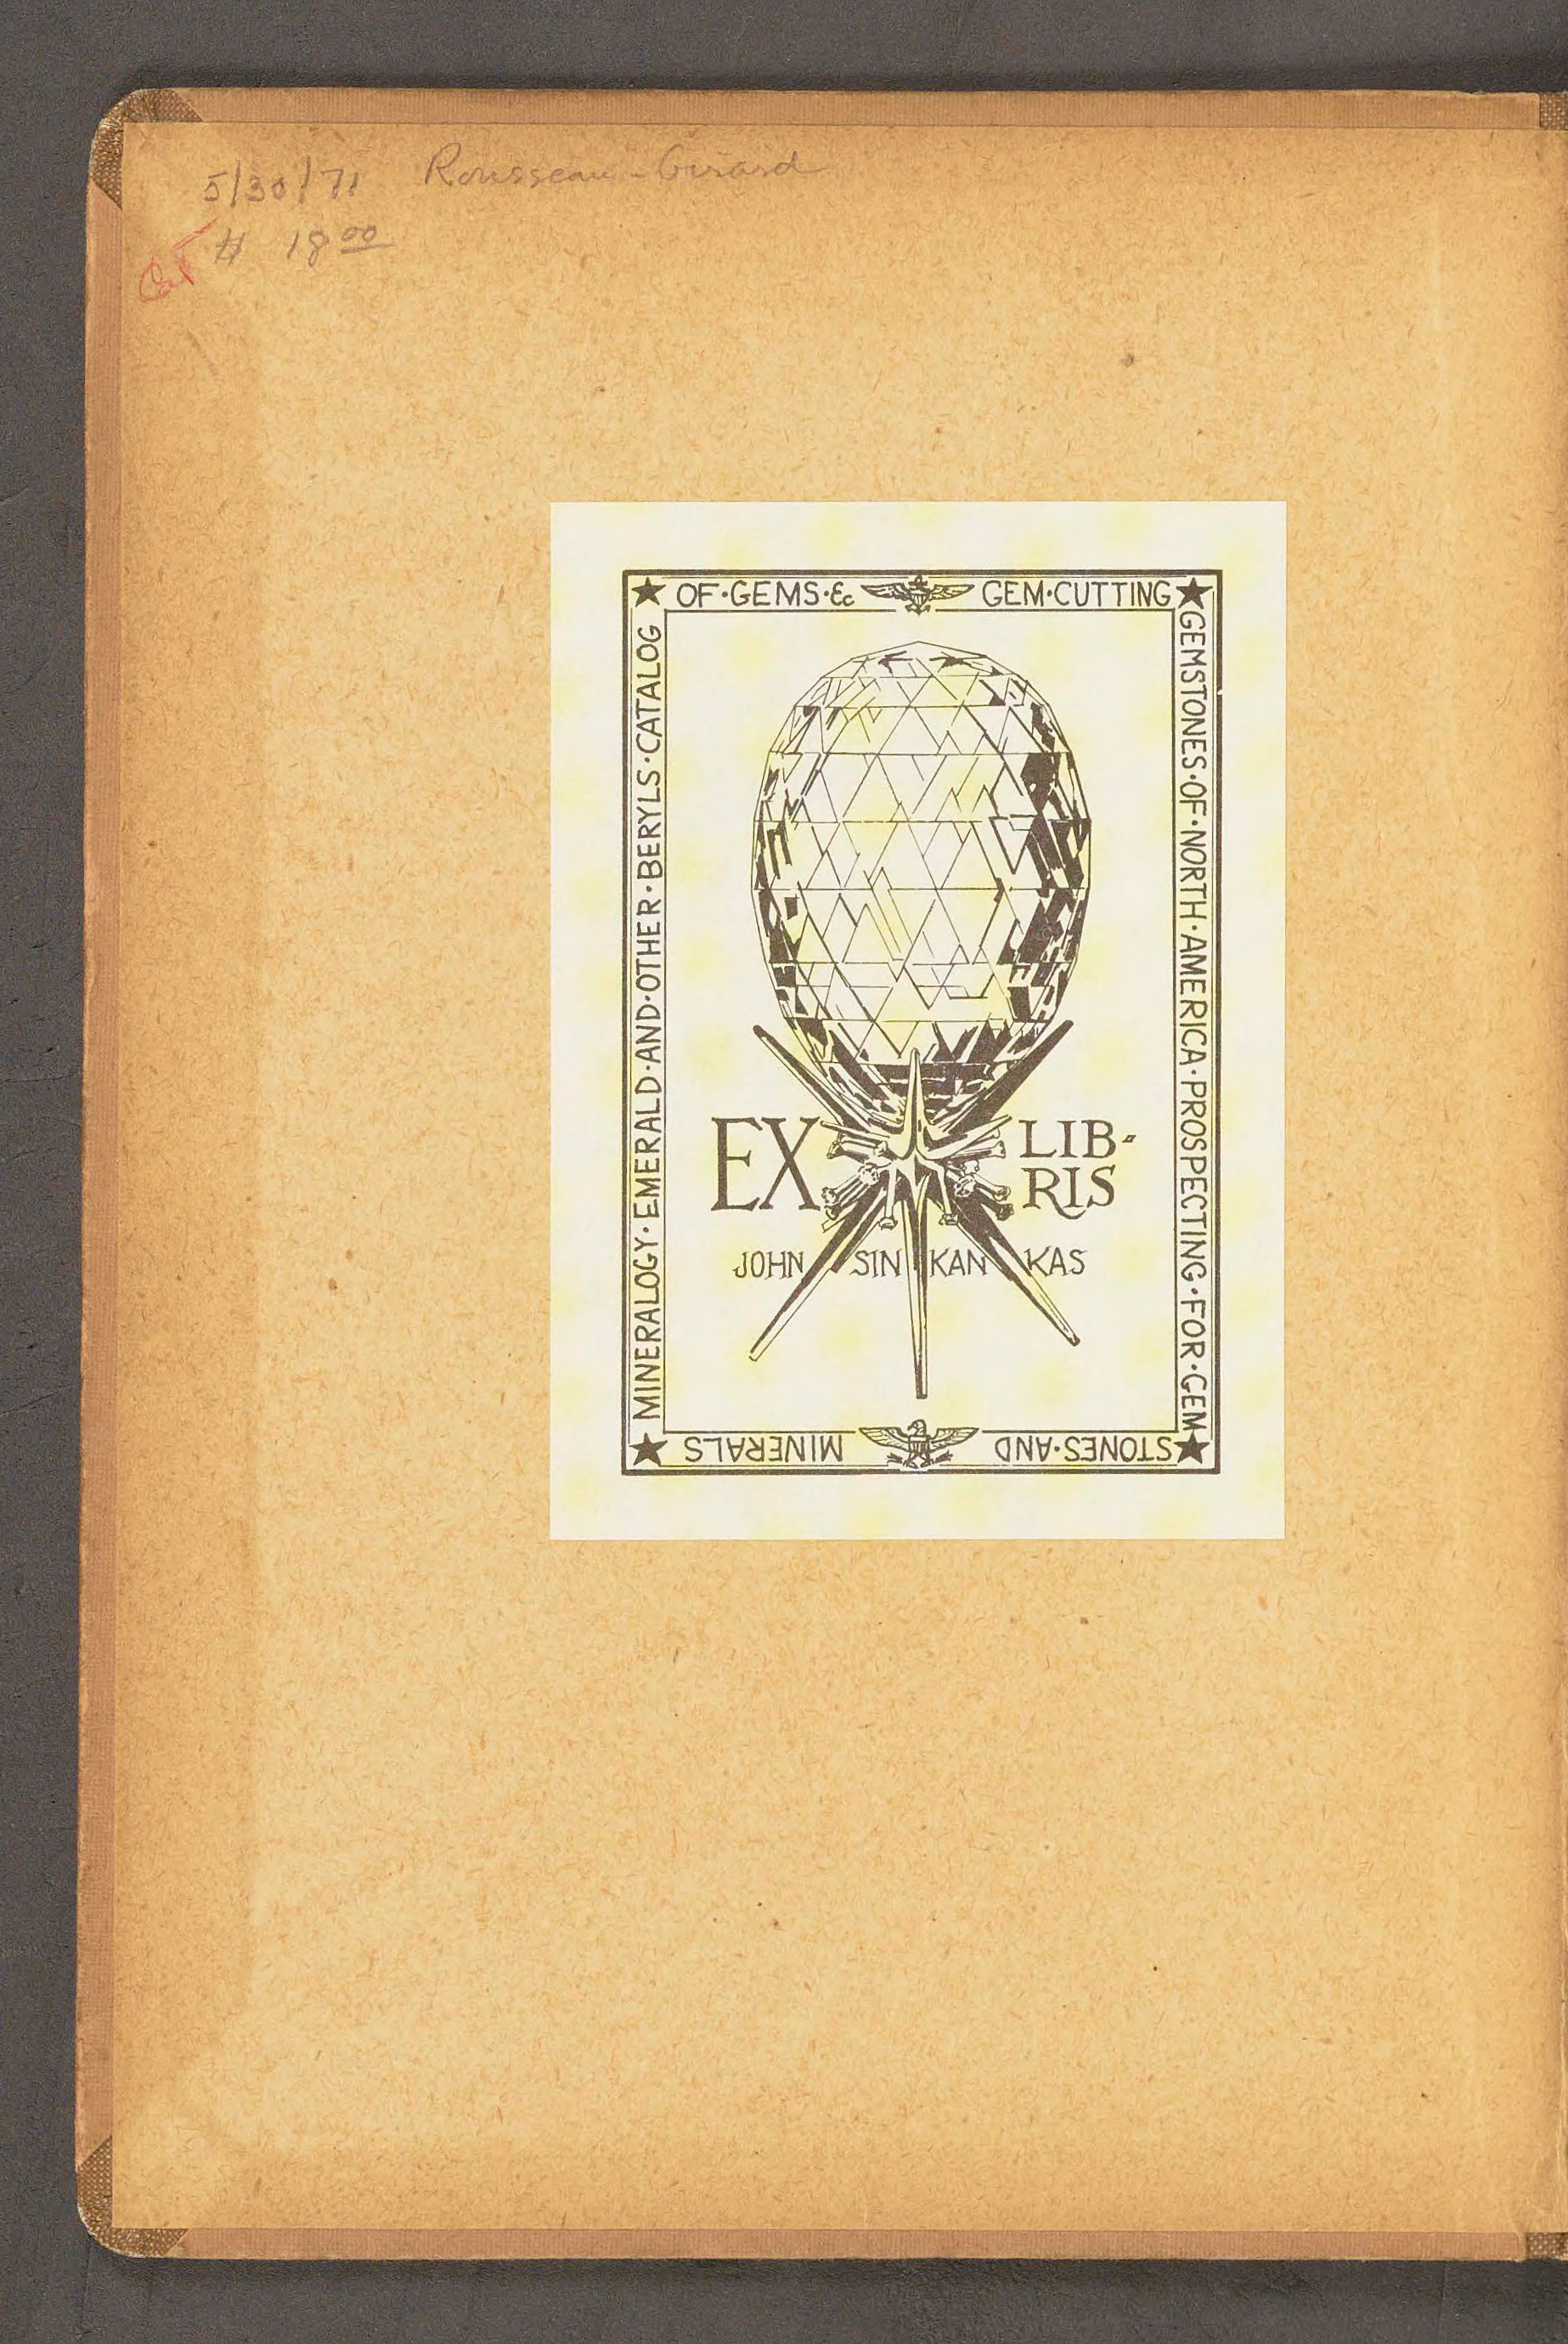 5/30/71 Rousseau-Girard
Cat # 18 00
OF·GEMS·& GEM·CUTTING
GEMSTONES·OF·NORTH·AMERICA·PROSPECTING·FOR·GEM
STONES·AND MINERALS
MINERALOGY·EMERALD·AND·OTHER·BERYLS·CATALOG
EX LIB-
RIS
JOHN SIN KAN KAS